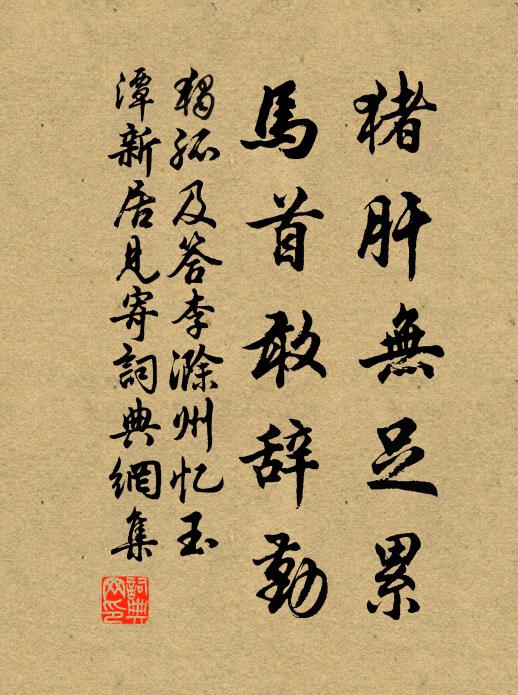 猪肝無足累
馬首敢辞勤
獨孤及答李滁州忆玉
潭新居見寄詞典網集
詞典網印